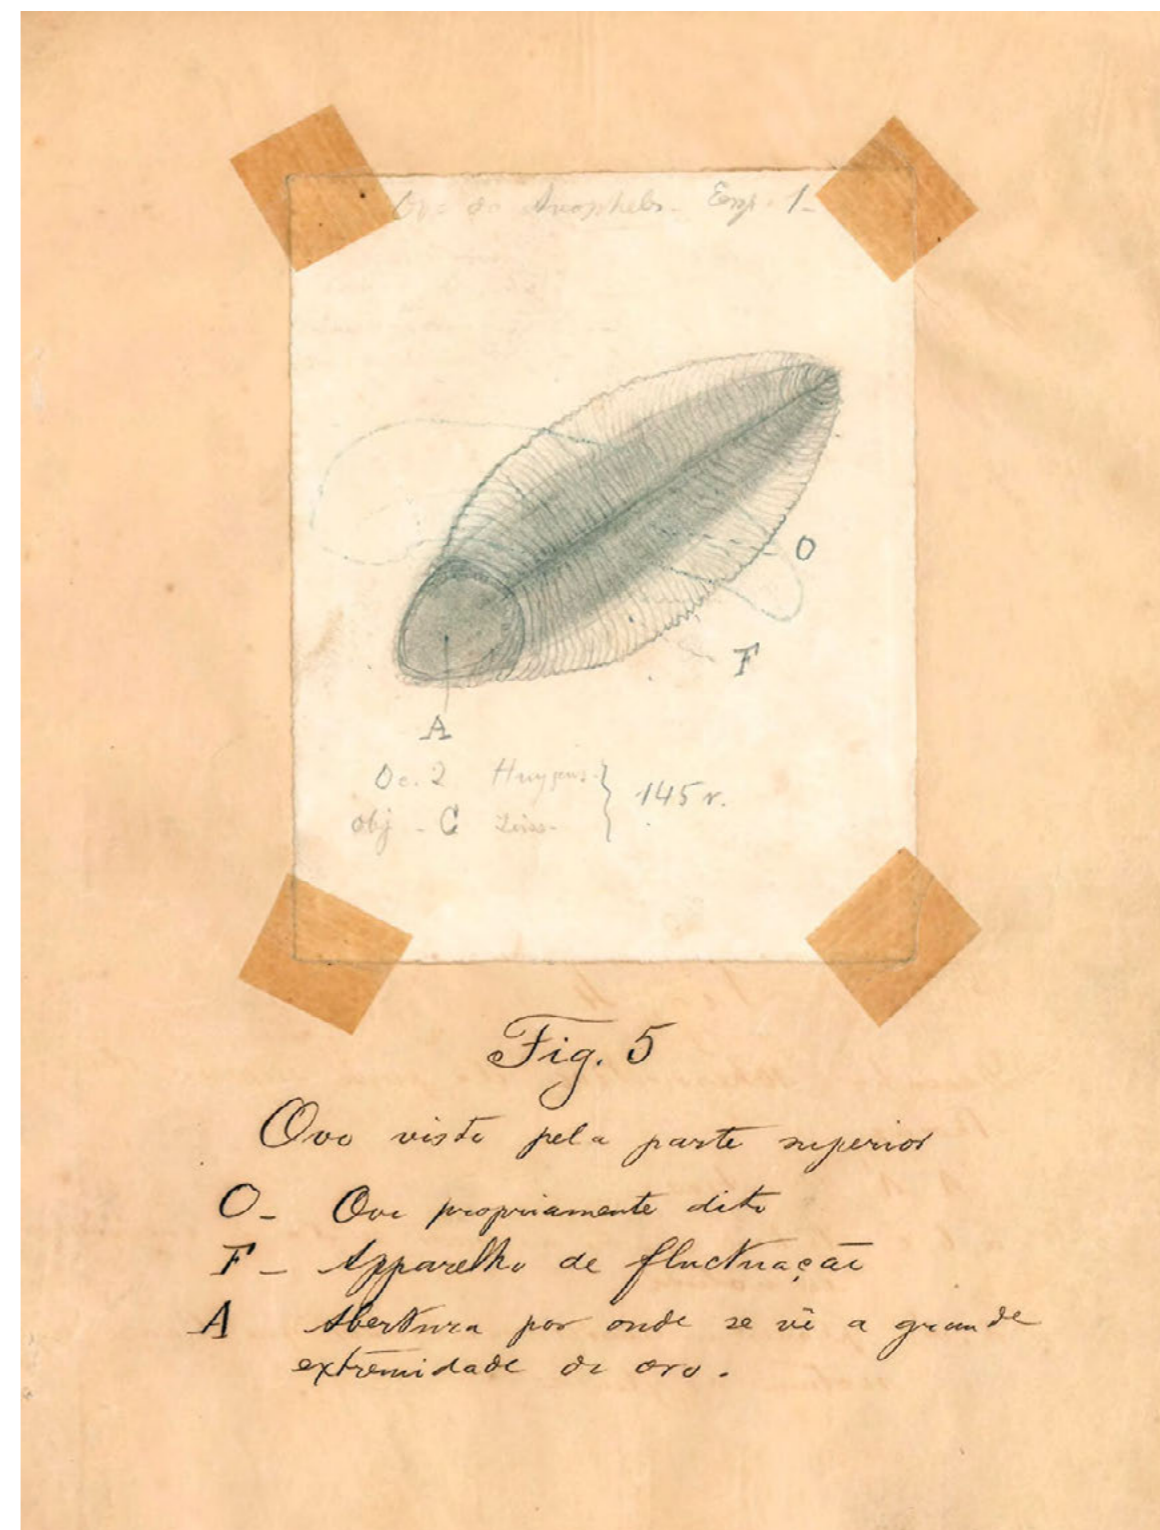 Ovo do Anopheles - Esp. 1 -
O
F
A
Oc. 2 Huygens
Obj - C Zeiss -
145 v.
Fig. 5
Ovo visto pela parte superior
O - Ovo propriamente dito
F - Apparelho de fluctuação
A Abertura por onde se vê a grande
extremidade do ovo.